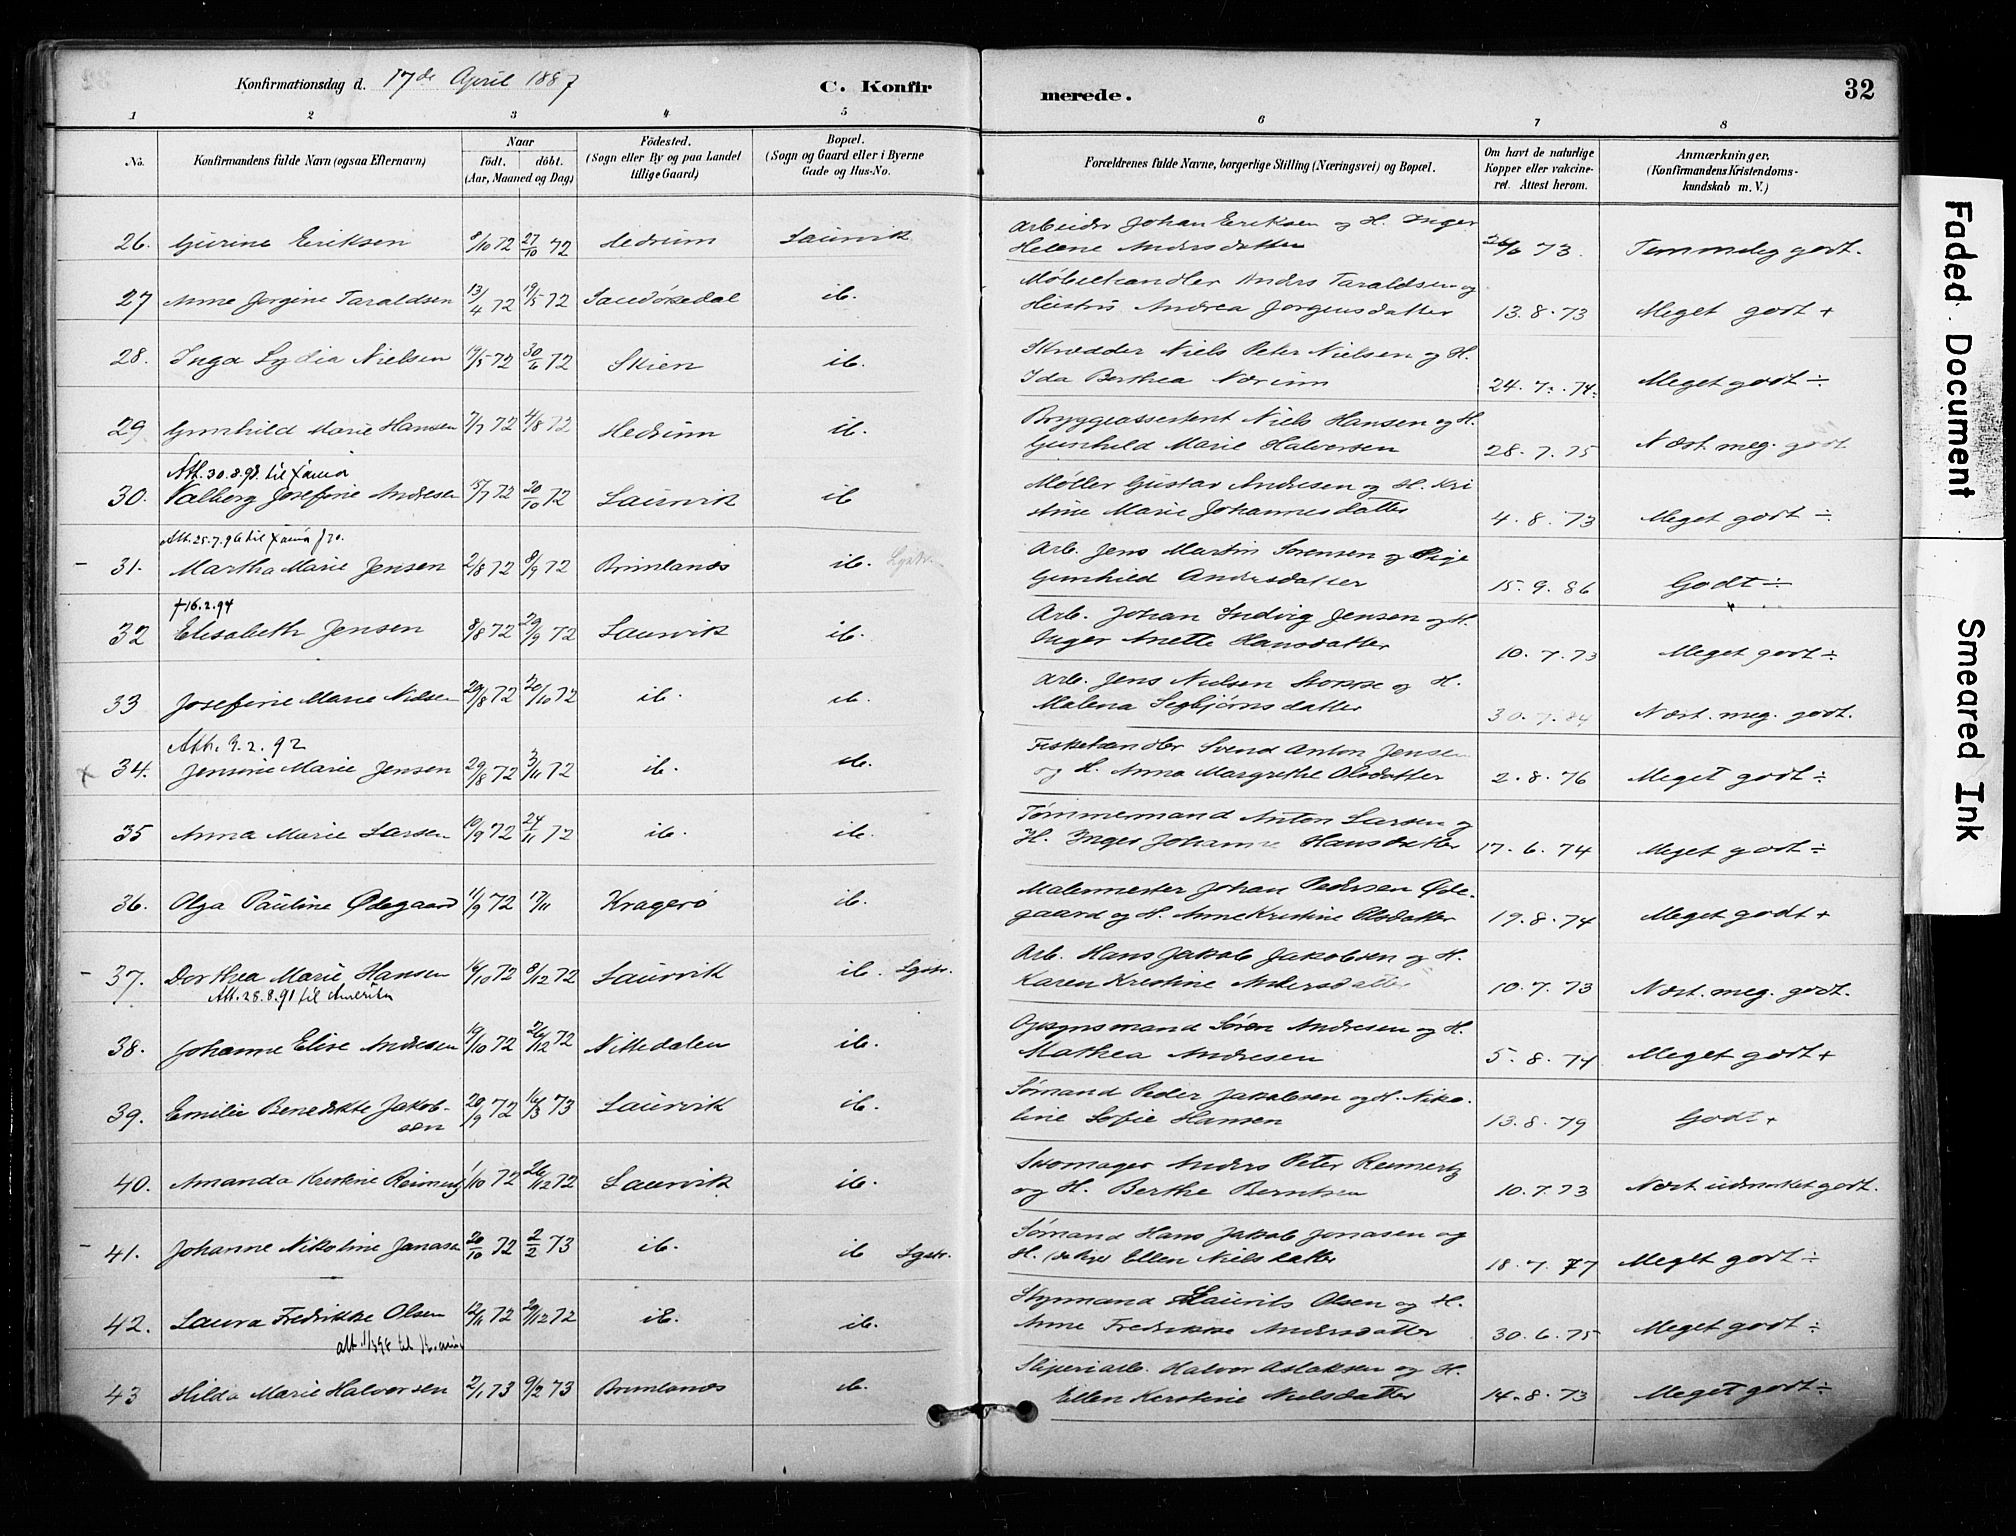 Konfirmationsdag d. 17de April 1887
C. Konfirmerede.
32
1 2 3 4 5 6 7 8
No.
Konfirmandens fulde Navn (ogsaa Efternavn)
Naar
födt. döbt.
(Aar, Maaned og Dag)
Födested.
(Sogn eller By og paa Landet
tillige Gaard)
Bopæl.
(Sogn og Gaard eller i Byerne
Gade og Hus-No.
Forældrenes fulde Navne, borgerlige Stilling (Næringsvei) og Bopæl.
Om havt de naturlige
Kopper eller vakcine-
ret. Attest herom.
Anmærkninger,
(Konfirmandens Kristendoms-
kundskab m. V.)
26. Gurine Eriksen 8/10 72 27/10 72 Hedrum Laurvik Arbeider Johan Eriksen og H. Inger
Helene Andersdatter 26/6 73. Temmelig godt.
27 Anne Jorgine Taraldsen 13/4 72 19/5 72 Sandökedal ib. Møbelhandler Anders Taraldsen og
Hustru Andrea Jorgensdatter 13.8.73 Meget godt +
28. Inga Lydia Nielsen 19/5 72 30/6 72 Skien ib. Skrædder Niels Peter Nielsen og H.
Ida Berthea Nærum 24.7.74. Meget godt ÷
29 Gunhild Marie Hansen 7/7 72 4/8 72 Hedrum ib. Bryggeassistent Niels Hansen og H.
Gunhild Marie Halvorsen 28.7.75 Næst. meg. godt
Att. 30.8.98 til Xania
30. Valborg Josefine Andresen 5/7 72 20/10 72 Laurvik ib Møller Gustav Andresen og H. Kri
stine Marie Johannesdatter 4.8.73 Meget godt ÷
Att. 25.7.96 til Xania
31. Martha Marie Jensen 2/8 72 8/9 72 Brunlanes ib. Arb. Jens Martin Sorensen og Pige
Gunhild Andersdatter 15.9.86 Godt ÷
†16.2.94
32 Elisabeth Jensen 8/8 72 29/9 72 Laurvik ib. Arb. Johan Ludvig Jensen og H.
Inger Anette Hansdatter 10.7.73 Meget godt ÷
33 Josefine Marie Nilsen 29/8 72 20/10 72 ib. ib. Arb. Jens Nielsen Stokke og H.
Malena Segbjørnsdatter 30.7.84 Næst. meg. godt.
Att. 9.2.92
34. Jensine Marie Jensen 29/8 72 3/11 72 ib. ib. Fiskehandler Svend Anton Jensen
og H. Anna Margrethe Olsdatter 2.8.76 Meget godt ÷
35 Anna Marie Larsen 19/9 72 24/11 72 ib. ib. Tømmermand Anton Larsen og
H. Inger Johanne Hansdatter 17.6.74 Meget godt ÷
36. Olga Pauline Ødegaard 11/9 72 17/11 Kragerö ib. Malermester Johan Pedersen Øde-
gaard og H. Anne Kristine Olsdatter 19.8.74 Meget godt +
37. Dorthea Marie Hansen 16/10 72 8/12 72 Laurvik ib. Lgstr. Arb. Hans Jakob Jakobsen og H.
Att. 28.8.91 til Amerika Karen Kristine Andersdatter 10.7.73 Næst. meg. godt.
38. Johanne Elise Andresen 19/10 72 26/12 72 Nittedalen ib. Opsynsmand Søren Andresen og H.
Mathea Andresen 5.8.74 Meget godt +
39. Emilie Benedikte Jakob-
sen 20/9 72 16/3 73 Laurvik ib. Sømand Peder Jakobsen og H. Niko-
line Sofie Hansen 13.8.79 Godt +
40. Amanda Kristine Reimertz 1/10 72 26/12 72 Laurvik ib. Skomager Anders Peter Reimertz
og H. Berthe Berntsen 10.7.73 Næst. udmærket godt.
41. Johanne Nikoline Jonasen 20/10 72 2/2 73 ib. ib Lgstr. Sømand Hans Jakob Jonasen og
H. Ellen Nielsdatter 18.7.77 Meget godt ÷
42. Laura Fredrikke Olsen 12/11 72 29/12 72 ib. ib. Styrmand Laurits Olsen og H.
Anne Fredrikke Andersdatter 30.6.75 Meget godt ÷
43 Hilda Marie Halvorsen 2/1 73 9/2 73 Brunlanes ib. Sliperiarb. Halvor Aslaksen og H.
Ellen Kirstine Nielsdatter 14.8.73 Meget godt ÷
Faded Document
Smeared Ink